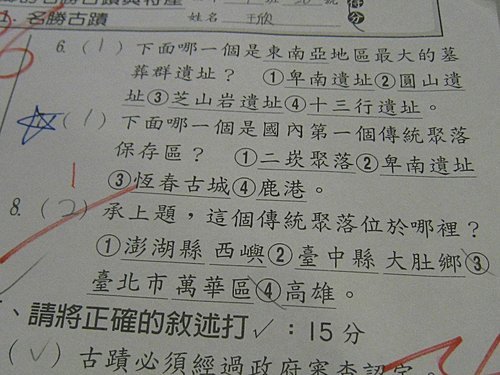 名勝古蹟 姓名 王欣 得分
6. (1) 下面哪一個是東南亞地區最大的墓
葬群遺址? ①卑南遺址②圓山遺
址③芝山岩遺址④十三行遺址。
(1) 下面哪一個是國內第一個傳統聚落
保存區? ①二崁聚落②卑南遺址
③恆春古城④鹿港。
8. (2) 承上題,這個傳統聚落位於哪裡?
①澎湖縣 西嶼②臺中縣 大肚鄉③
臺北市 萬華區④高雄。
、請將正確的敘述打✓:15分
(✓) 古蹟必須經過政府審查認定。